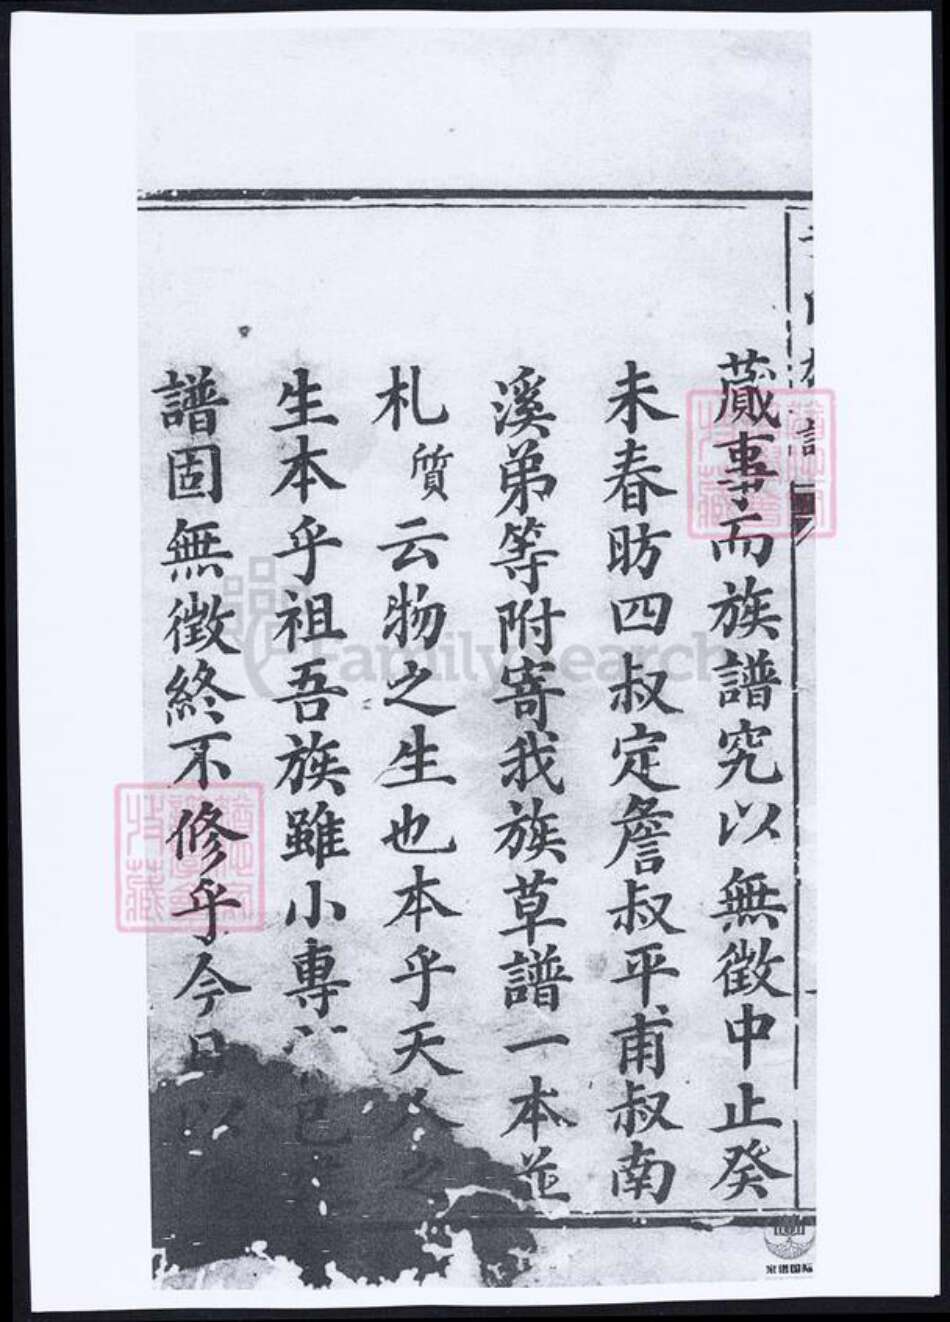 蕆事而族譜究以無徵中止癸
未春昉四叔定詹叔平甫叔南
溪弟等附寄我族草譜一本並
札質云物之生也本乎天人之
生本乎祖吾族雖小專
譜固無徵終不修乎今日以
FamilySearch
家譜国际